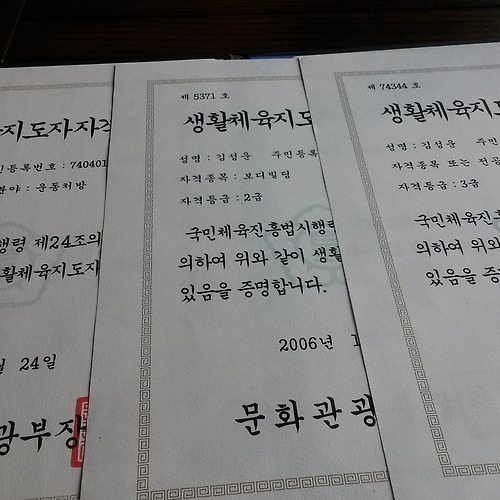 지도자자격
등록번호 : 740401
분야 : 운동처방
행령 제24조의
활체육지도자
월 24일
광부장
제 5371 호
생활체육지도
성명 : 김성운 주민등록
자격종목 : 보디빌딩
자격등급 : 2급
국민체육진흥법시행령
의하여 위와 같이 생활
있음을 증명합니다.
2006년 1
문화관광
제 74344 호
생활체육지도
성명 : 김성운 주민
자격종목 또는 전공
자격등급 : 3급
국민체육진
의하여 위와
있음을 증